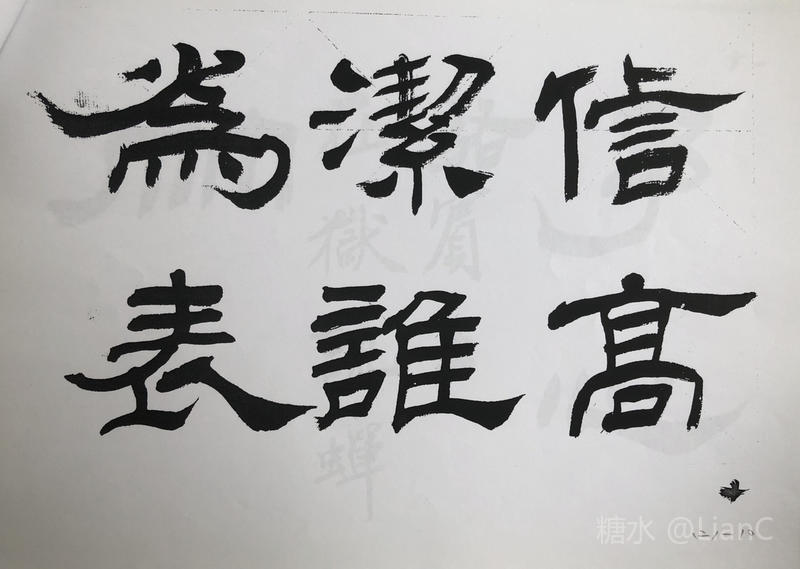 信高
潔誰
為表
糖水 @LianC